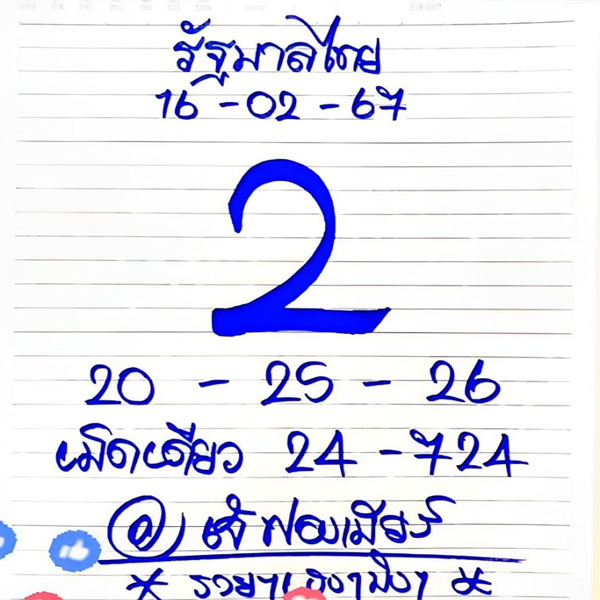 รัฐบาลไทย
16 - 02 - 67
2
20 - 25 - 26
เม็ดเดียว 24 - 724
เจ๊ฟองเบียร์
* รวยๆ เฮงๆ ปังๆ *